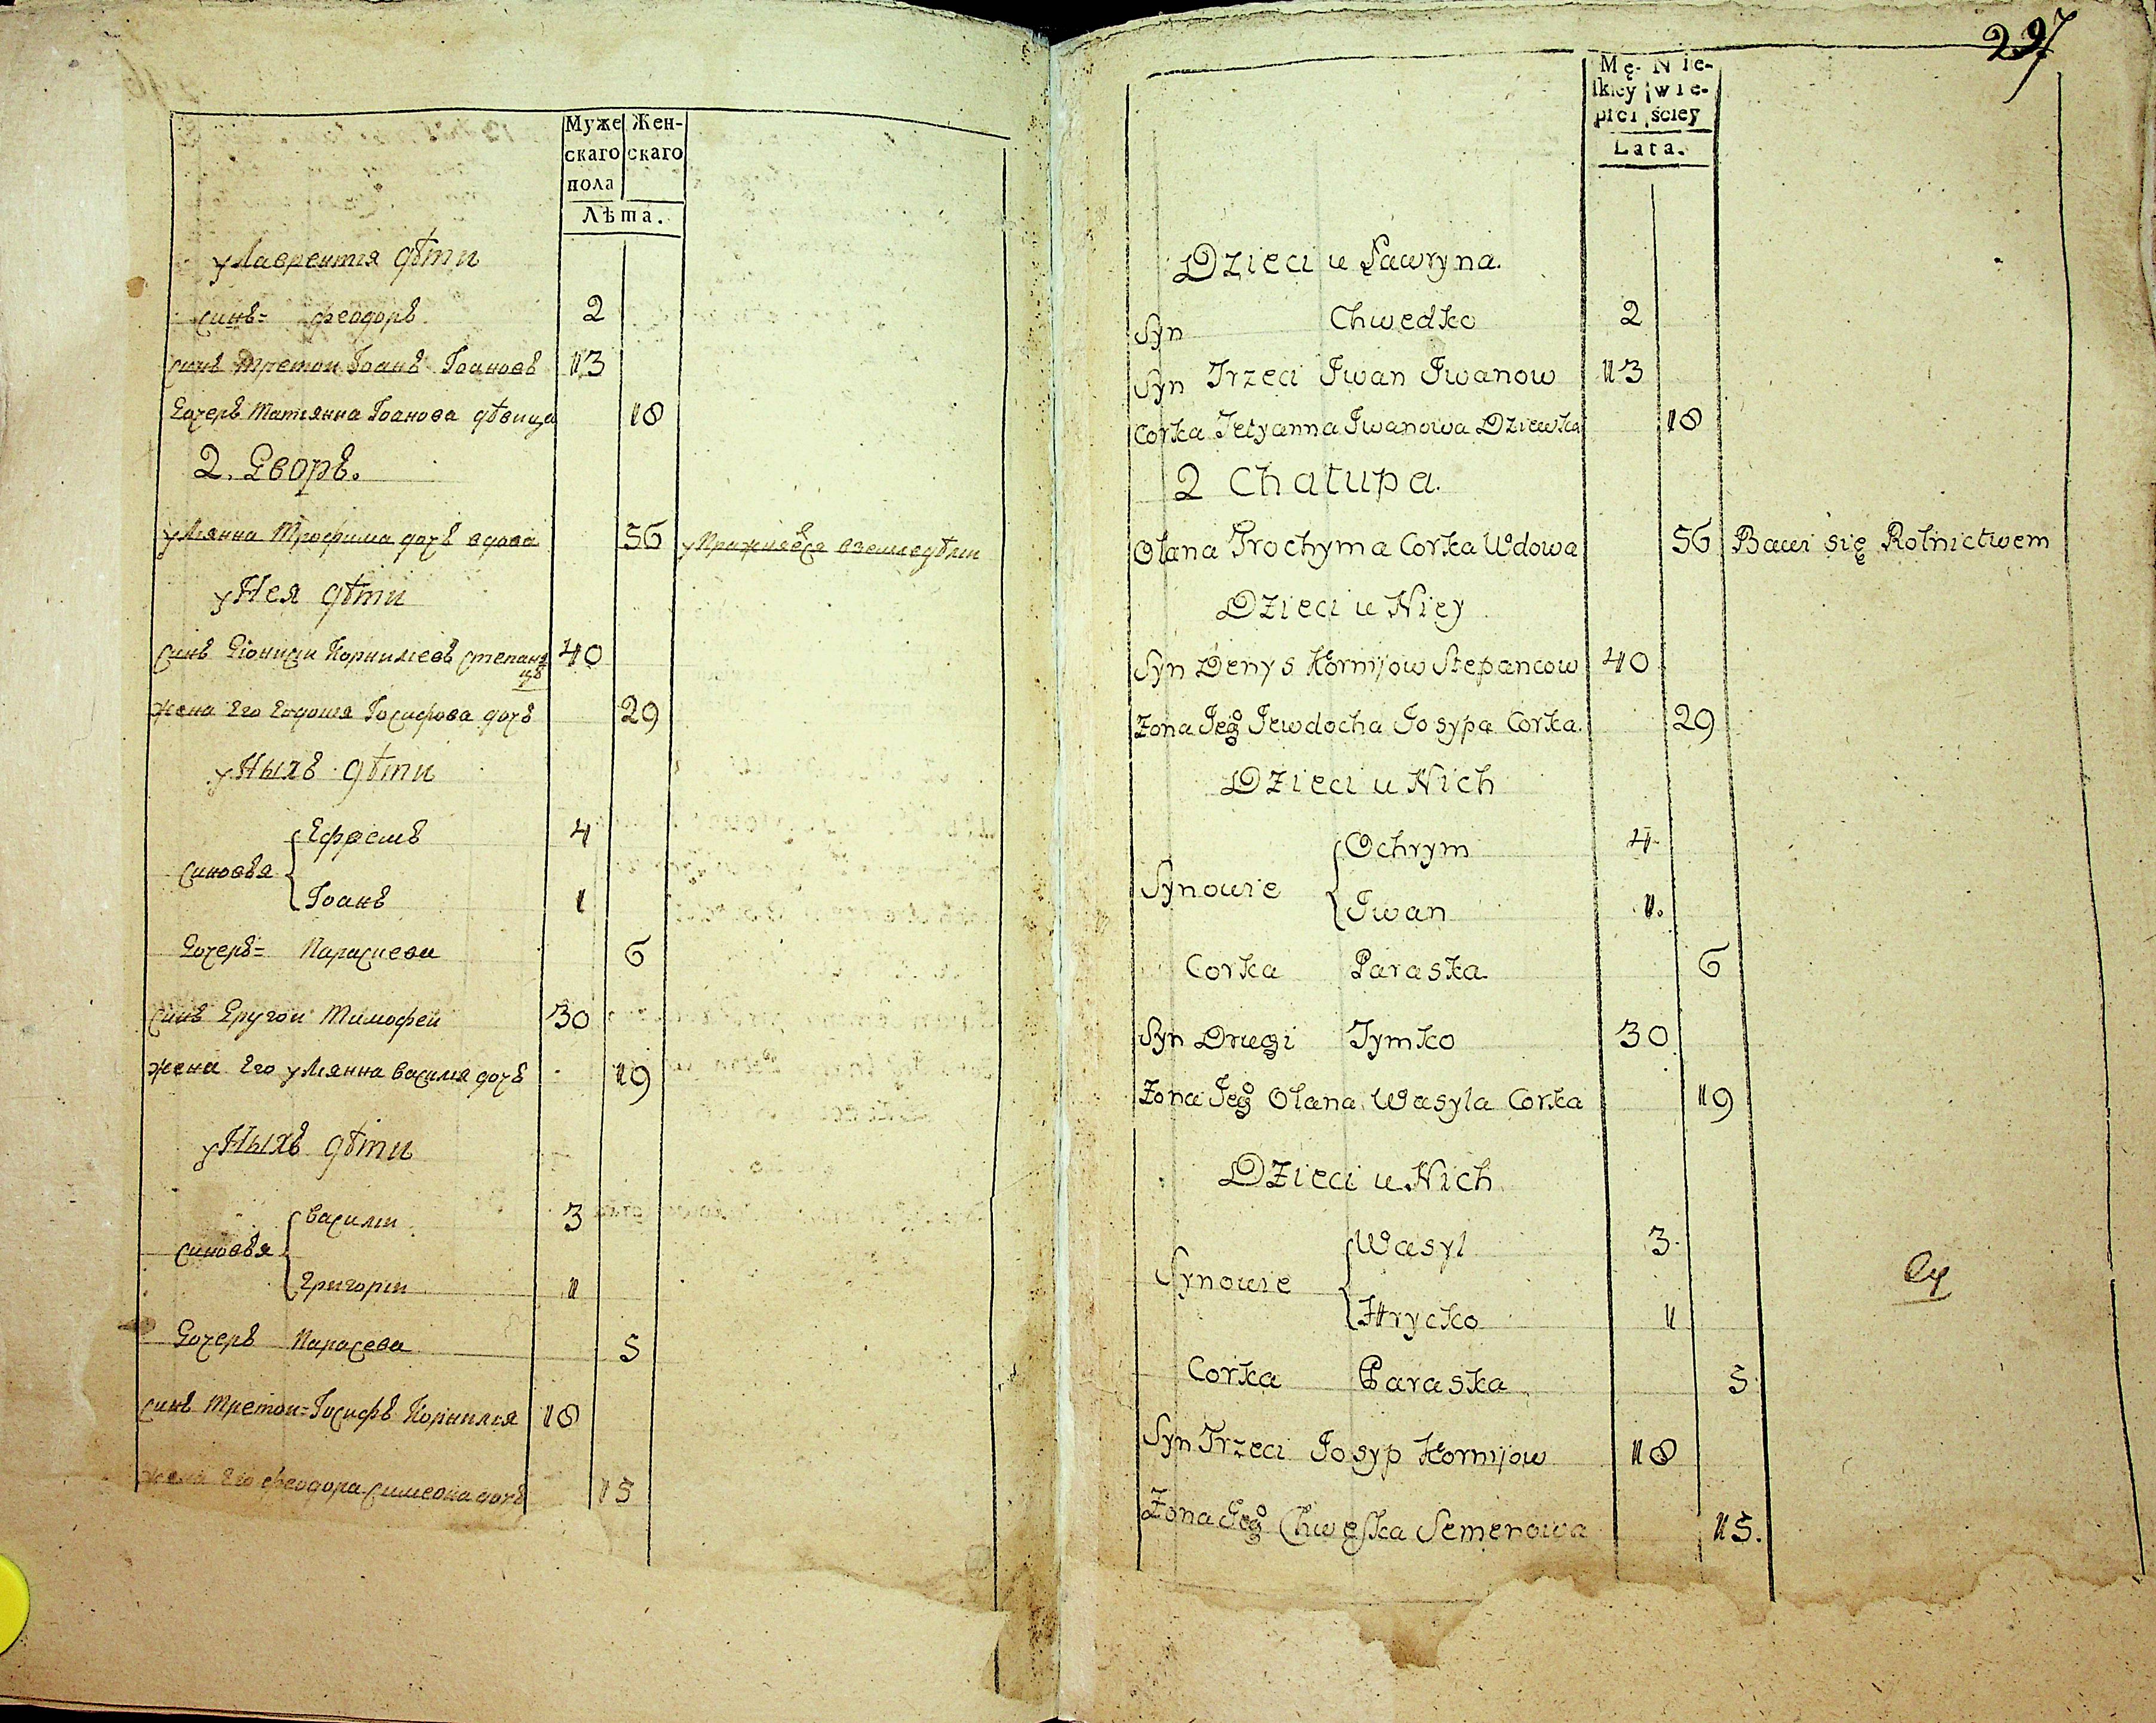 Муже Жен-
скаго скаго
пола
Лѣта.
у Лаврентія дѣти
синъ= Феодоръ 2
синъ третои Іоанъ Іоановъ 13
Дочеръ Татіянна Іоанова дѣвица 18
2. Дворъ.
уліянна Трофима дочъ вдова 56
у Нея дѣти
синъ Діонисіи Корниліевъ Степанцъ 40
жена Его Евдокія Іосифова дочъ 29
у Ныхъ дѣти
синовья { Ефремъ 4
Іоанъ 1
Дочеръ= Параскева 6
синъ Другои Тимофеи 30
жена Его уліянна василія дочъ 19
у Ныхъ дѣти
синовья { василіи 3
Григоріи 1
Дочеръ Парасева 5
синъ третои= Іосифъ Корнилія 18
жена Его Феодора Симеона дочъ 15
297
Mę- Nie-
skiey wie-
płci ściey
Lata.
Dzieci u Ławryna.
Syn Chwedko 2
Syn Trzeci Iwan Iwanow 13
Corka Tetyanna Iwanowa Dziewka 18
2 Chałupa.
Olana Trochyma Corka Wdowa 56 Bawi się Rolnictwem
Dzieci u Niey
Syn Denys Kornijow Stepancow 40
Żona Jego Jewdocha Josypa Corka. 29
Dzieci u Nich
Synowie { Ochrym 4
Iwan 1.
Corka Paraska 6
Syn Drugi Tymko 30
Żona Jego Olana Wasyla Corka 19
Dzieci u Nich
Synowie { Wasyl 3
Hrycko 1
Corka Paraska 5
Syn Trzeci Josyp Kornijow 18
Żona Jego Chweska Semenowa 15.